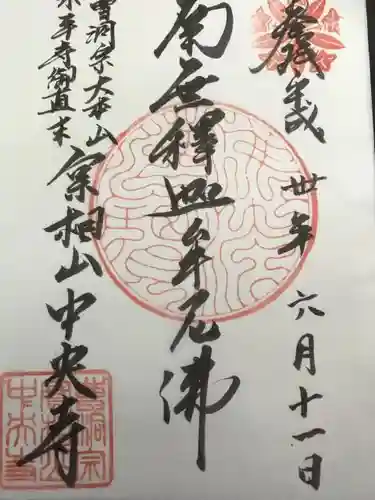 奉拝
卅年
六月十一日
南無釋迦牟尼佛
曹洞宗大本山
永平寺御直末
實相山中央寺